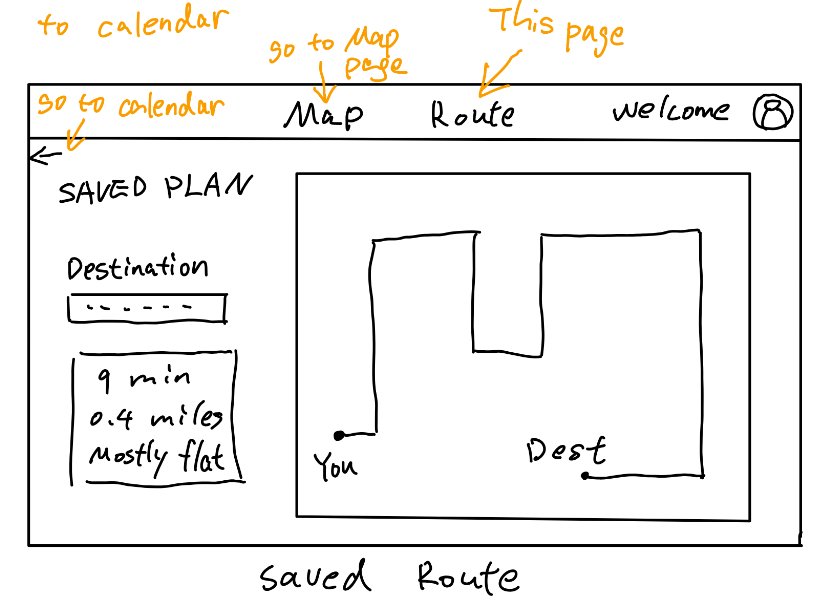 to calendar
go to Map
page
This page
go to calendar
Map Route Welcome
SAVED PLAN
Destination
9 min
0.4 miles
Mostly flat
You
Dest
Saved Route